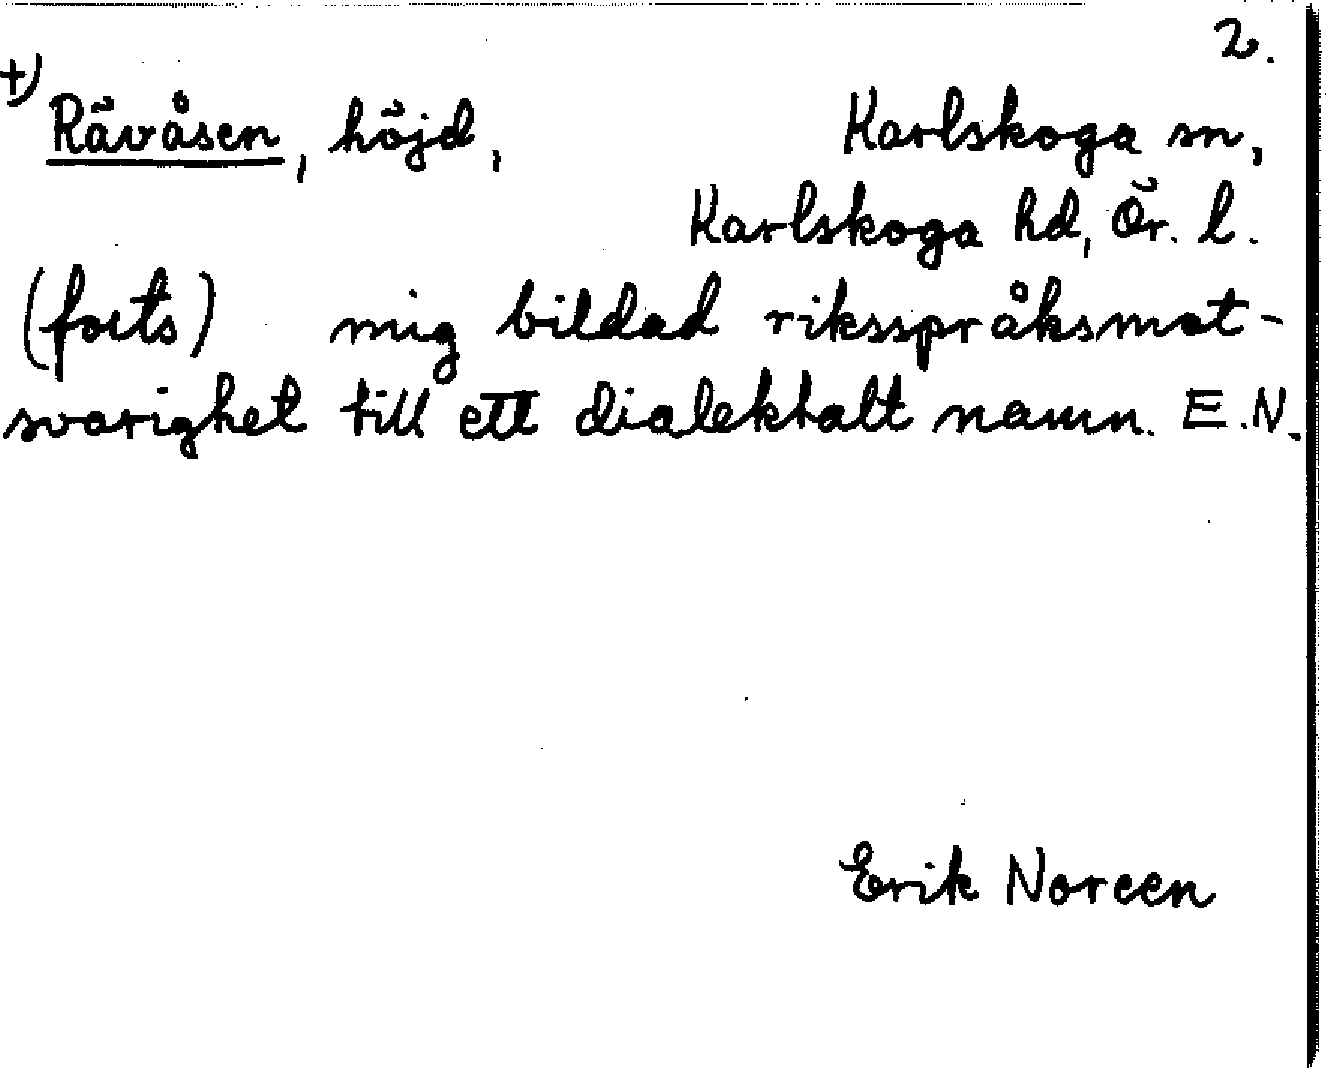 2.
+) Rävåsen, höjd, Karlskoga sn,
Karlskoga hd, Ör. l.
(forts) mig bildad riksspråksmot-
svarighet till ett dialektalt namn. E.N.
Erik Noreen